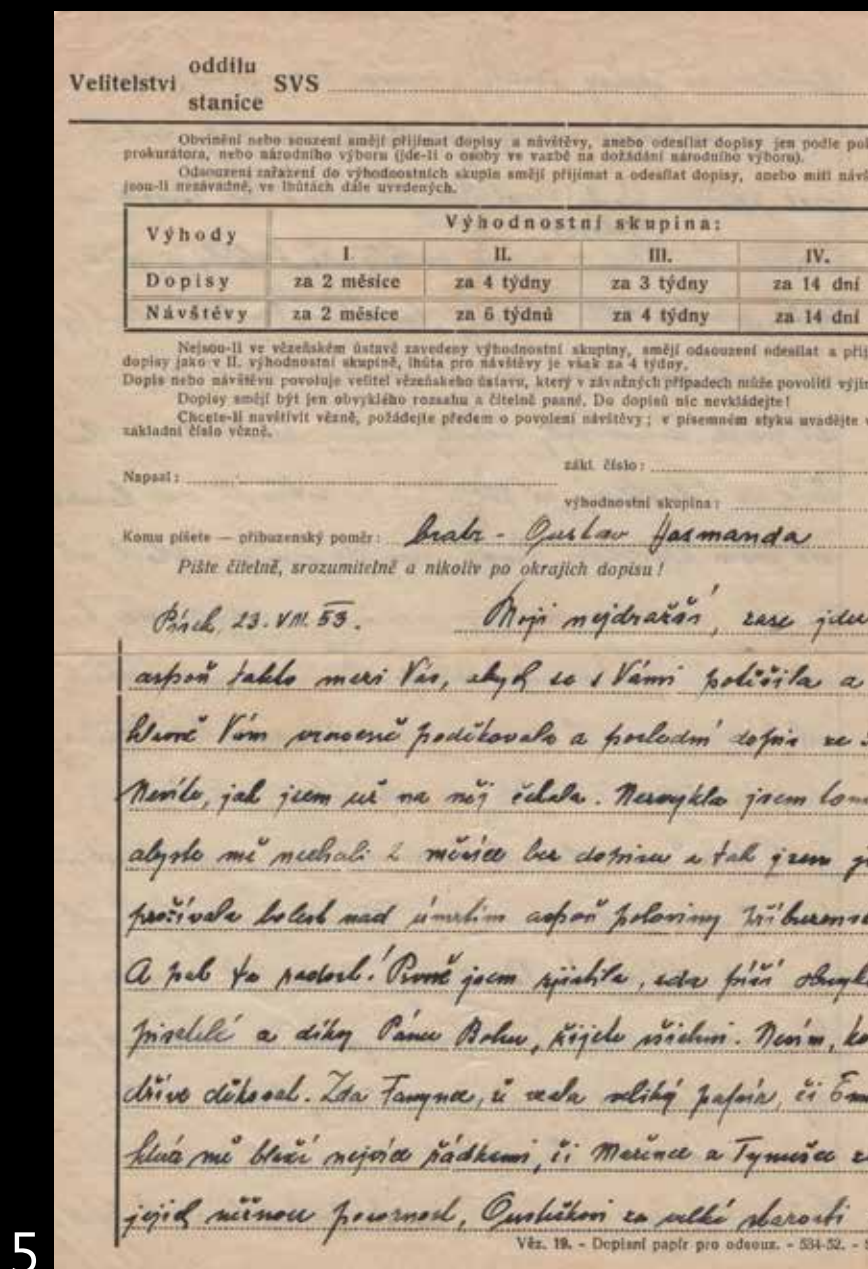 Velitelství oddílu stanice SVS
Obvinění nebo souzení smějí přijímat dopisy a návštěvy, anebo odesílat dopisy jen podle
prokurátora, nebo národního výboru (jde-li o osoby ve vazbě na dožádání národního výboru).
Odsouzení zařazení do výhodnostních skupin smějí přijímat a odesílat dopisy, anebo míti
jsou-li nezávadné, ve lhůtách dále uvedených.
Výhody Výhodnostní skupina:
I. II. III. IV.
Dopisy za 2 měsíce za 4 týdny za 3 týdny za 14 dní
Návštěvy za 2 měsíce za 6 týdnů za 4 týdny za 14 dní
Nejsou-li ve vězeňském ústavě zavedeny výhodnostní skupiny, smějí odsouzení odesílat a
dopisy jako v II. výhodnostní skupině, lhůta pro návštěvy je však za 4 týdny.
Dopis nebo návštěvu povoluje velitel vězeňského ústavu, který v závažných případech může povoliti
Dopisy smějí být jen obvyklého rozsahu a čitelně psané. Do dopisů nic nevkládejte!
Chcete-li navštívit vězně, požádejte předem o povolení návštěvy; v písemném styku uvádějte
základní číslo vězně.
Napsal: zákl. číslo:
výhodnostní skupina:
Komu píšete — příbuzenský poměr: bratr - Gustav Hasmanda
Pište čitelně, srozumitelně a nikoliv po okrajích dopisu!
Písek 23. VIII. 53. Moji nejdražší, zase jdu
aspoň takto mezi Vás, abych se s Vámi potěšila a
hlavně Vám vroucně poděkovala a poslední dopis ze
Nevíte, jak jsem už na něj čekala. Nezvykla jsem
abyste mě nechali 2 měsíce bez dopisu a tak jsem
prožívala bolest nad úmrtím aspoň poloviny
A pak ta radost! Prvně jsem zjistila, zda píší
pisatelé a díky Pánu Bohu, žijete všichni. Nevím,
dříve děkovat. Zda veliký papír, či
která mě blaží nejvíce řádkami, či Mařence a
jejich něžnou pozornost, Gustíčkovi za velké starosti
Věz. 19. - Dopisní papír pro odsouz. - 534-52. -
5